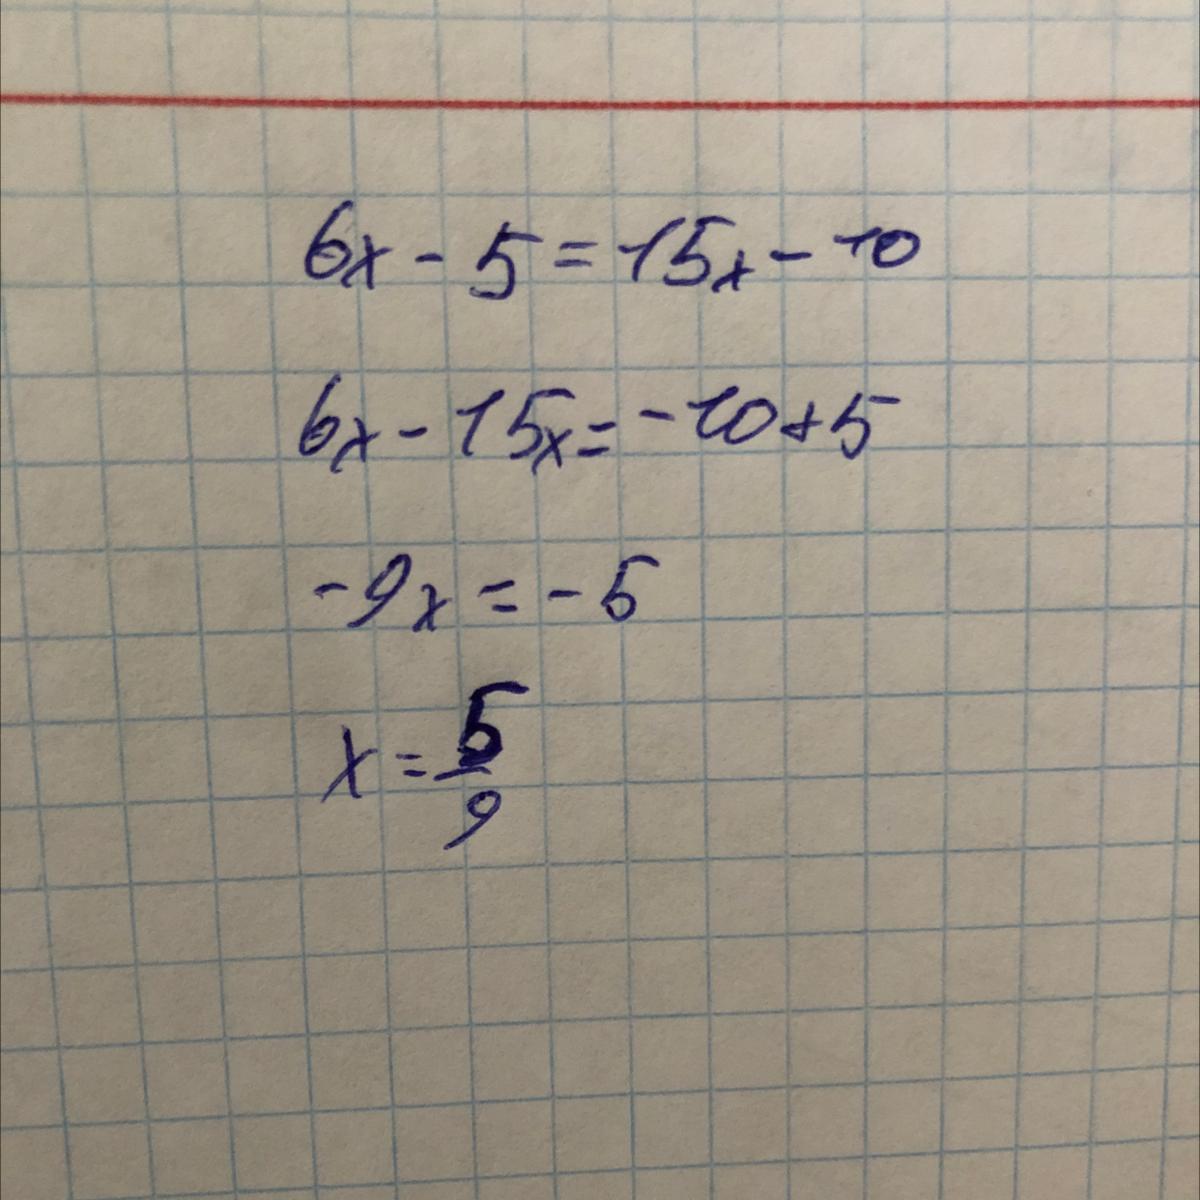 6x - 5 = 15x - 10
6x - 15x = -10 + 5
-9x = -5
x = 5/9